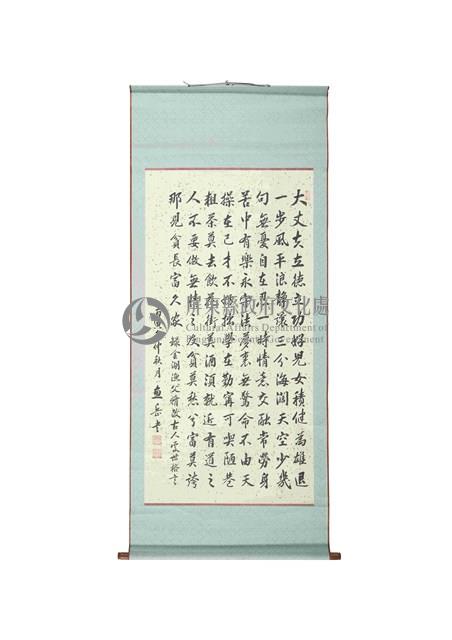 大丈夫立德立功好兒女積健為雄退
一步風平浪靜讓三分海闊天空少幾
句無憂自在忍一時情意交融常勞身
苦中有樂永守法夢裏無驚命不由天
操在己才不磨學在勤寧可安陋巷
粗茶莫去飲街美酒須就近有道之
人不要做無情之友貧莫愁兮富莫誇
那見貧長富久家
錄金湖漁父惜故古人處世格言
仲秋月
屏東縣政府文化處
Cultural Affairs Department of
Pingtung County Government